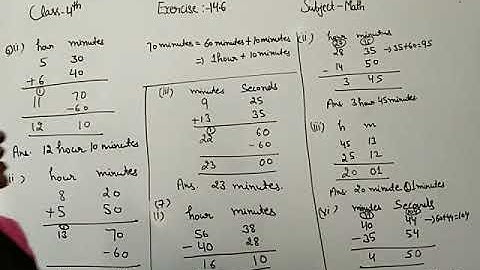 Class-4th Exercise:-14.6 Subject-Math
6)(i) hour minutes
5 30
+6 40
① 11 70
-60
12 10
Ans. 12 hour 10 minutes
ii) hour minutes
8 20
+5 50
① 13 70
-60
70 minutes = 60 minutes + 10 minutes
⇒ 1 hour + 10 minutes
(iii) minutes Seconds
9 25
+13 35
① 22 60
-60
23 00
Ans. 23 minutes.
(7)
(i) hour minutes
56 38
-40 28
16 10
(ii) hour minutes
28 35 → 35+60=95
-14 50
3 45
Ans 3 hour 45 minutes
(iii) h m
45 13
25 12
20 01
Ans. 20 minute 01 minutes
(vi) minutes Seconds
40 44 → 60+44=104
-35 54
4 50